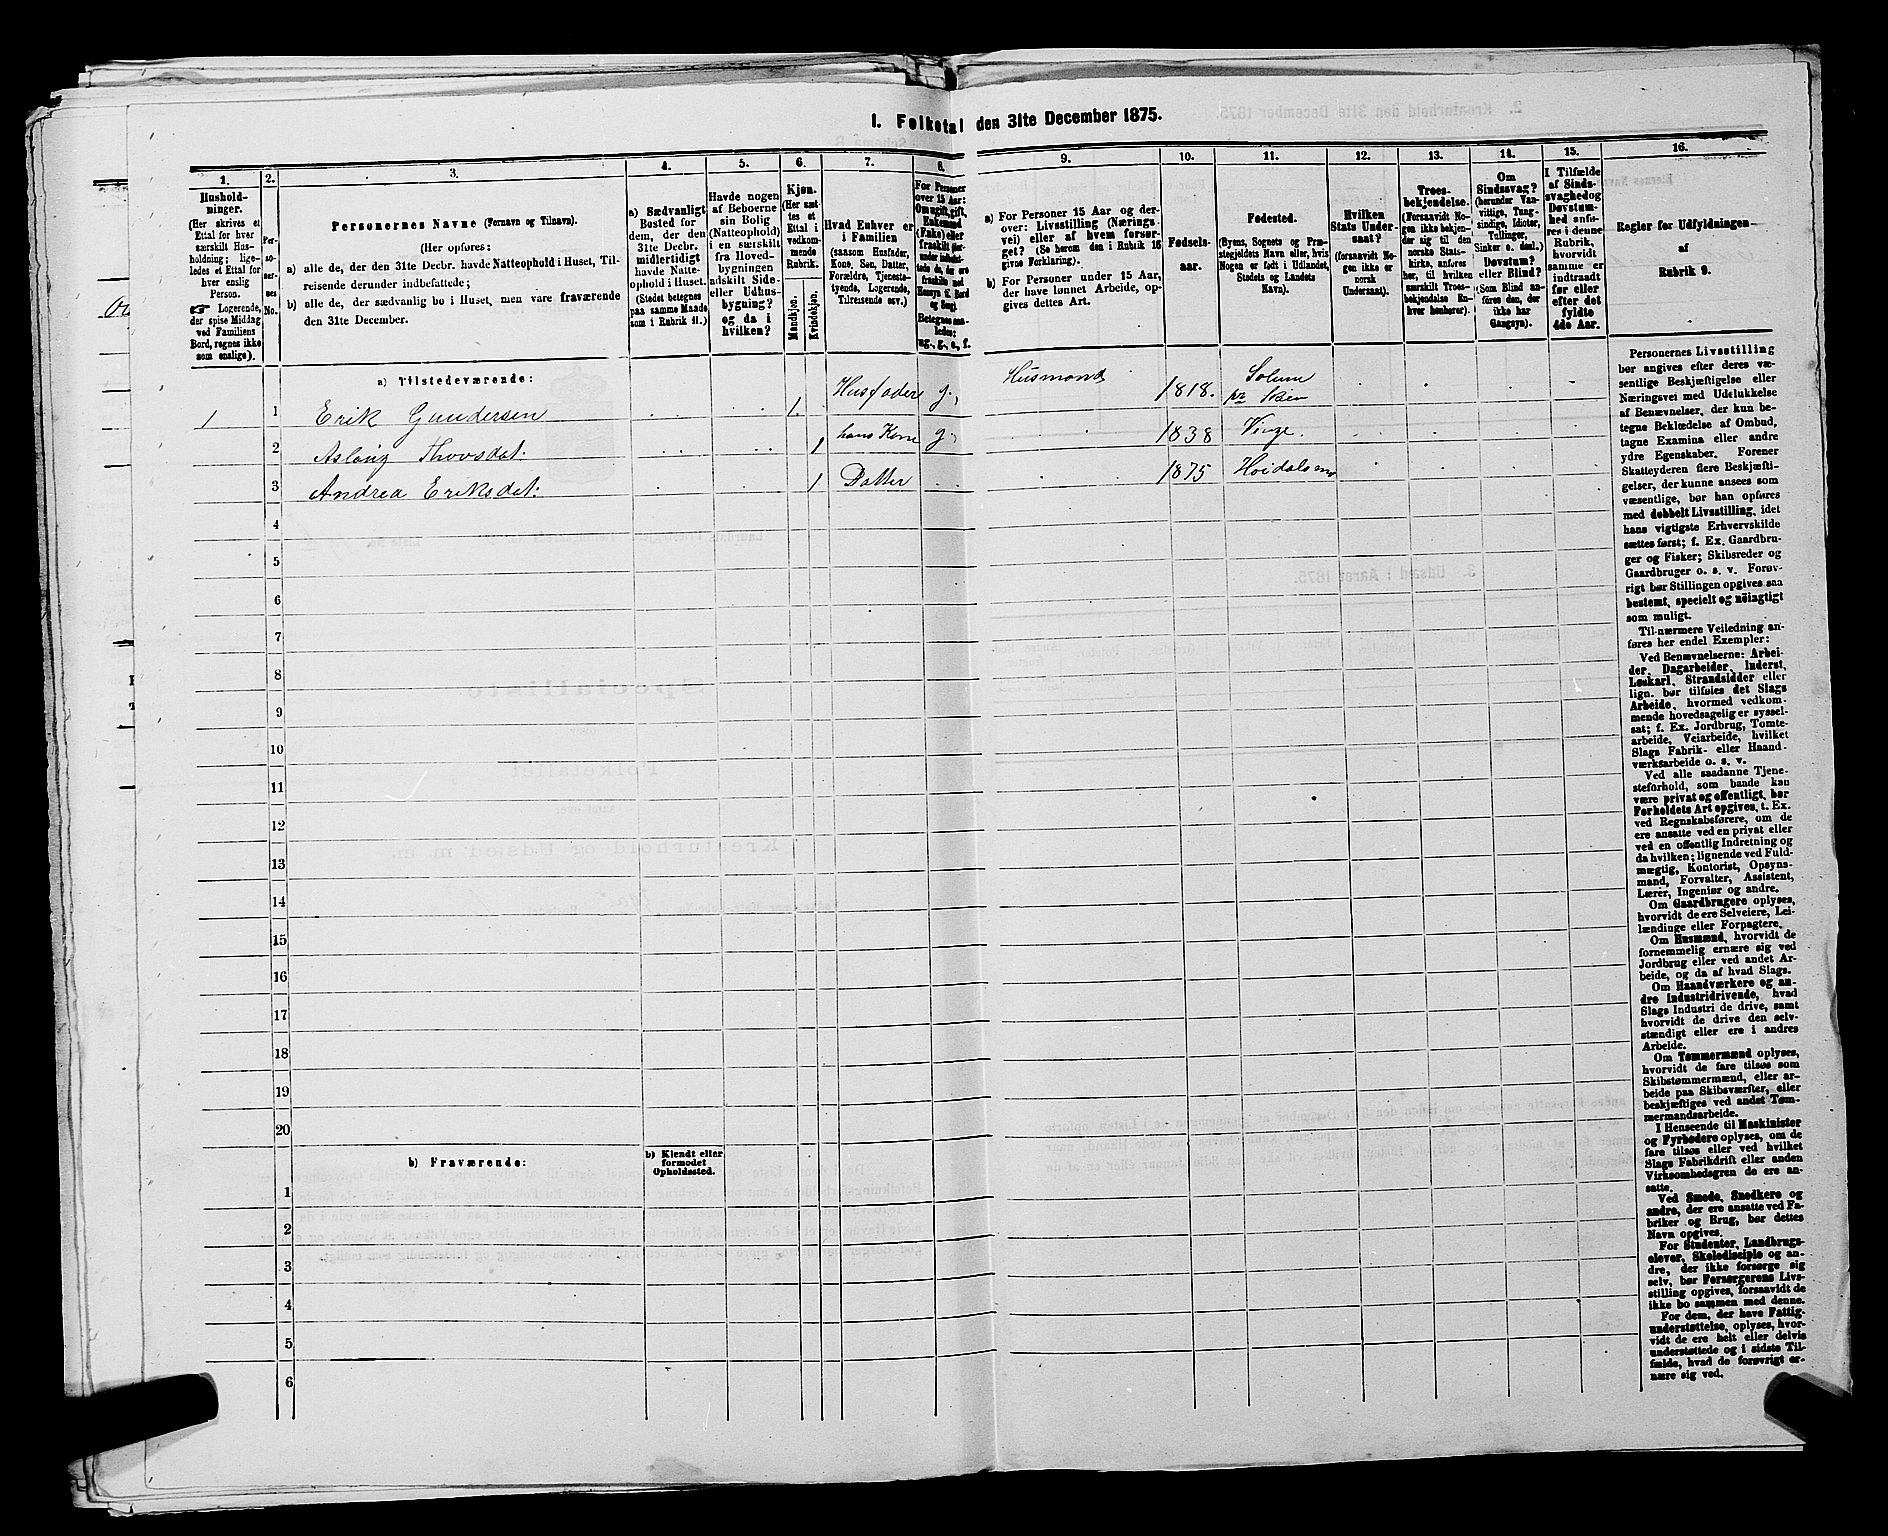 I. Folketal den 31te December 1875.
1. 2. 3. 4. 5. 6. 7. 8. 9. 10. 11. 12. 13. 14. 15. 16.
Hushold-
ninger.
(Her skrives et
Ettal for hver
særskilt Hus-
holdning; lige-
ledes et Ettal for
hver enslig
Person.
☞ Logerende,
der spise Middag
ved Familiens
Bord, regnes ikke
som enslige).
Per-
so-
ner-
nes
No.
Personernes Navne (Fornavn og Tilnavn).
(Her opføres:
a) alle de, der den 31te Decbr. havde Natteophold i Huset, Til-
reisende derunder indbefattede;
b) alle de, der sædvanlig bo i Huset, men vare fraværende
den 31te December.
a) Sædvanligt
Bosted for
dem, der den
31te Decbr.
midlertidigt
havde Natte-
ophold i Huset.
(Stedet betegnes
paa samme Maade
som i Rubrik 11.)
Havde nogen
af Beboerne
sin Bolig
(Natteophold)
i en særskilt
fra Hoved-
bygningen
adskilt Side-
eller Udhus-
bygning?
og da i
hvilken?
Kjøn.
(Her sæt-
tes et
Ettal i
vedkom-
mende
Rubrik.
Mandkjøn.
Kvindekjøn.
Hvad Enhver er
i Familien
(saasom Husfader,
Kone, Søn, Datter,
Forældre, Tjeneste-
tyende, Logerende,
Tilreisende osv.)
For Personer
over 15 Aar:
Om ugift, gift,
Enkemand
(Enke) eller
fraskilt
Betegnes saa-
ledes:
ug., g., e., f.
a) For Personer 15 Aar og der-
over: Livsstilling (Nærings-
vei) eller af hvem forsør-
get? (Se herom den i Rubrik 16
givne Forklaring).
b) For Personer under 15 Aar,
der have lønnet Arbeide, op-
gives dettes Art.
Fødsels-
aar.
Fødested.
(Byens, Sognets og Præ-
stegjeldets Navn eller, hvis
Nogen er født i Udlandet,
Stedets og Landets
Navn).
Hvilken
Stats Under-
saat?
(forsaavidt No-
gen ikke er
norsk
Undersaat).
Troes-
bekjendelse.
(Forsaavidt No-
gen ikke bekjen-
der sig til den
norske Stats-
kirke, anføres
her, til hvilken
særskilt Troes-
bekjendelse En-
hver henhører).
Om
Sindssvag?
(herunder Van-
vittige, Tung-
sindige, Idioter,
Tullinger,
Sinker o. desl.)
Døvstum?
eller Blind?
(Som Blind an-
føres den, der
ikke har
Gangsyn).
I Tilfælde
af Sinds-
svaghed og
Døvstum-
hed anfø-
res i denne
Rubrik,
hvorvidt
samme er
indtraadt
før eller
efter det
fyldte
4de Aar.
Regler for Udfyldningen
af
Rubrik 9.
a) Tilstedeværende:
1 1 Erik Gundersen 1. Husfader g. Husmand 1818. Solum pr Skien
2 Aslaug Thovsdat: 1 hans Kone g. 1838 Vinje.
3 Andrea Eriksdat: 1 Datter 1875 Hoidalsmo
4
5
6
7
8
9
10
11
12
13
14
15
16
17
18
19
20
b) Fraværende:
b) Kjendt eller
formodet
Opholdssted.
1
2
3
4
5
6
Personernes Livsstilling
bør angives efter deres væ-
sentlige Beskjæftigelse eller
Næringsvei med Udelukkelse
af Benævnelser, der kun be-
tegne Beklædelse af Ombud,
tagne Examina eller andre
ydre Egenskaber. Forener
Skatteyderen flere Beskjæfti-
gelser, der kunne ansees som
væsentlige, bør han opføres
med dobbelt Livsstilling, idet
hans vigtigste Erhvervskilde
sættes først; f. Ex. Gaardbru-
ger og Fisker; Skibsreder og
Gaardbruger o. s. v. Forøv-
rigt bør Stillingen opgives saa
bestemt, specielt og nöiagtigt
som muligt.
Til nærmere Veiledning an-
føres her endel Exempler:
Ved Benævnelserne: Arbei-
der, Dagarbeider, Inderst,
Løskarl, Strandsidder eller
lign. bør tilføies det Slags
Arbeide, hvormed vedkom-
mende hovedsagelig er syssel-
sat; f. Ex. Jordbrug, Tomte-
arbeide, Veiarbeide, hvilket
Slags Fabrik- eller Haand-
værksarbeide o. s. v.
Ved alle saadanne Tjene-
steforhold, som baade kan
være privat og offentligt, bør
Forholdets Art opgives, t. Ex.
ved Regnskabsførere, om de
ere ansatte ved en privat eller
ved en offentlig Indretning og
da hvilken; lignende ved Fuld-
mægtig, Kontorist, Opsyns-
mand, Forvalter, Assistent,
Lærer, Ingeniør og andre.
Om Gaardbrugere oplyses,
hvorvidt de ere Selveiere, Lei-
lændinge eller Forpagtere.
Om Husmænd, hvorvidt de
fornemmelig ernære sig ved
Jordbrug eller ved andet Ar-
beide, og da af hvad Slags.
Om Haandværkere og an-
dre Industridrivende, hvad
Slags Industri de drive, samt
hvorvidt de drive den selv-
stændigt eller ere i andres
Arbeide.
Om Tømmermænd oplyses,
hvorvidt de fare tilsøs som
Skibstømmermænd, eller ar-
beide paa Skibsværfter, eller
beskjæftiges ved andet Tøm-
mermandsarbeide.
I Henseende til Maskinister
og Fyrbødere oplyses, om de
fare tilsøs eller ved hvilket
Slags Fabrikdrift eller anden
Virksomhedsgren de ere an-
satte.
Ved Smede, Snedkere og
andre, der ere ansatte ved Fa-
briker og Brug, bør dettes
Navn opgives.
For Studenter, Landbrugs-
elever, Skoledisciple og an-
dre, der ikke forsørge sig
selv, bør Forsørgerens Livs-
stilling opgives, forsaavidt de
ikke bo sammen med denne.
For dem, der have Fattig-
understøttelse, oplyses, hvor-
vidt de ere helt eller delvis
understøttede og i sidste Til-
fælde, hvad de forøvrigt er-
nære sig ved.